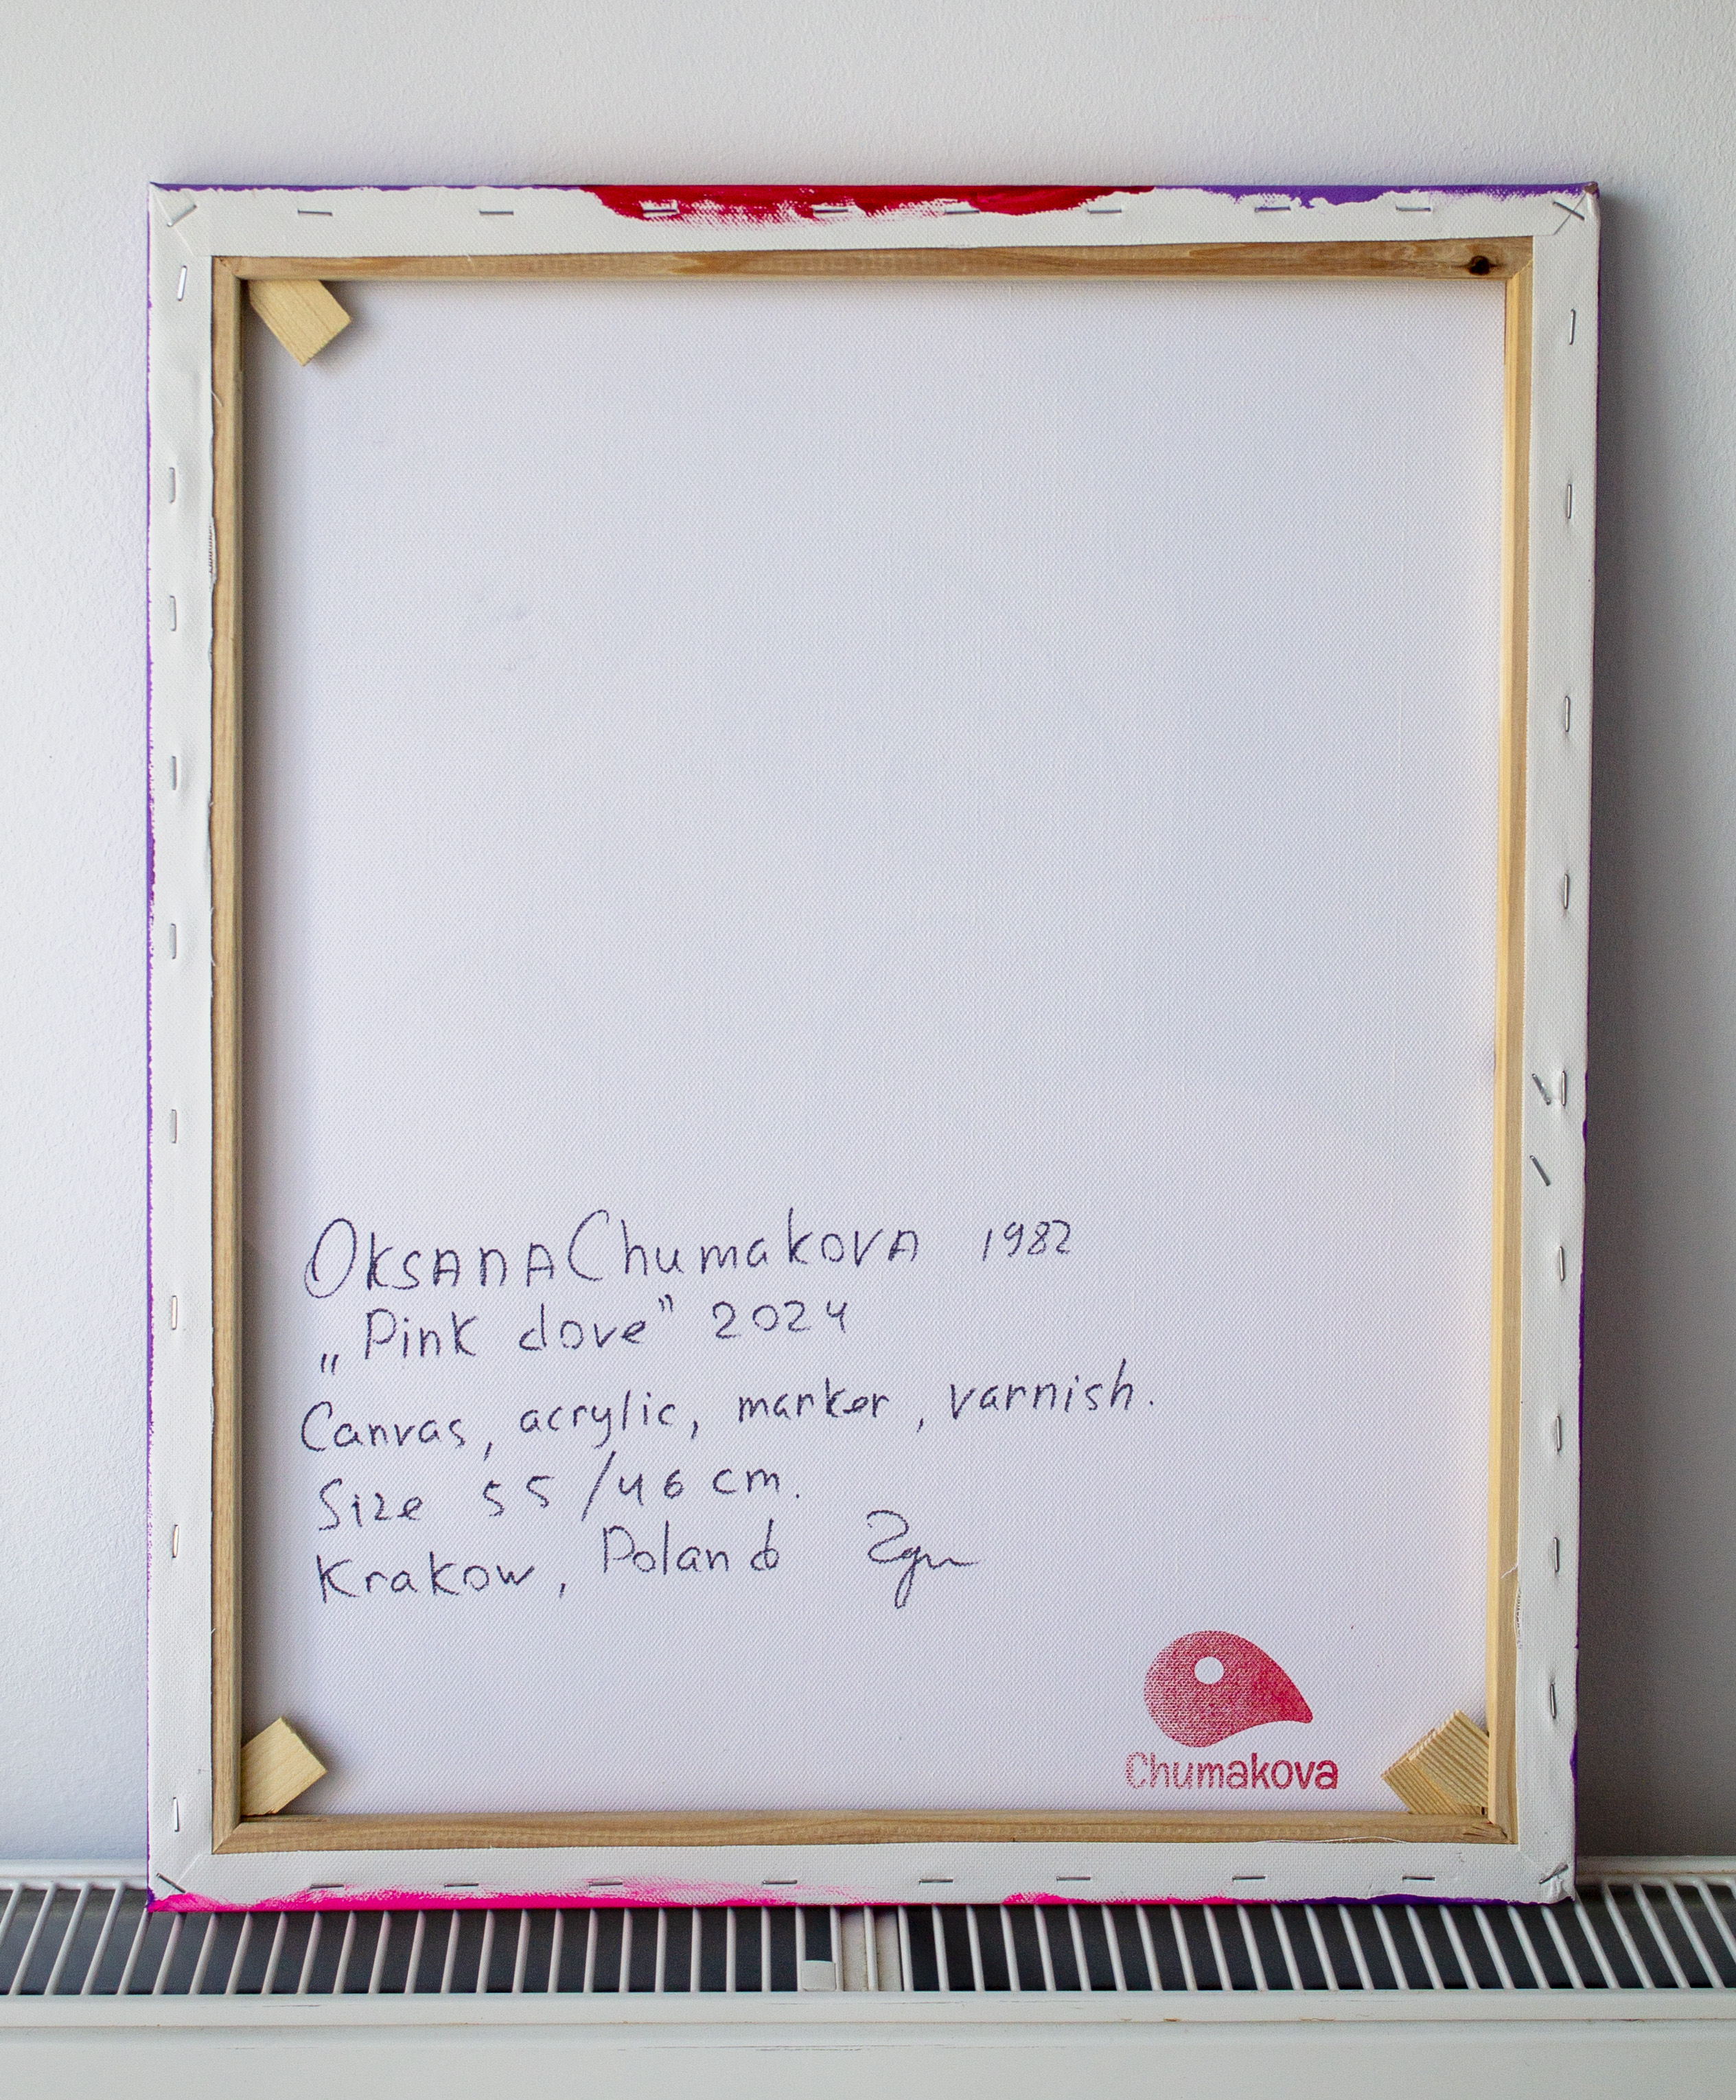 Oksana Chumakova 1982
„Pink dove” 2024
Canvas, acrylic, marker, varnish.
Size 55/46 cm.
Krakow, Poland
Chumakova